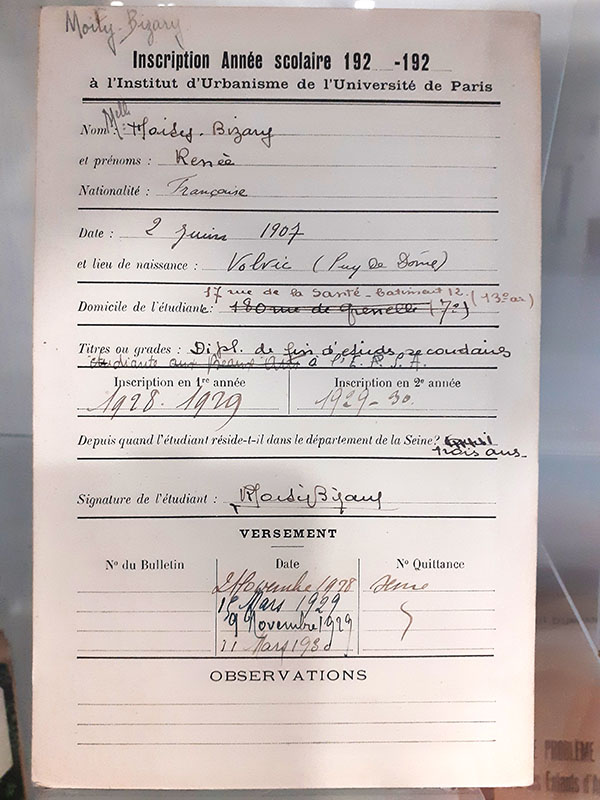 Moity-Bizary
Inscription Année scolaire 192 -192
à l'Institut d'Urbanisme de l'Université de Paris
Melle
Nom : Moisy-Bizary
et prénoms : Renée
Nationalité : Française
Date : 2 Juin 1907
et lieu de naissance : Volvic (Puy De Dôme)
17 rue de la Santé - Batiment 12. (13e ar)
Domicile de l'étudiant : 180 rue de Grenelle (7e)
Titres ou grades : Dipl. de fin d'études secondaires
étudiante aux Beaux Arts à l'E.R.S.A.
Inscription en 1re année Inscription en 2e année
1928-1929 1929-30
Depuis quand l'étudiant réside-t-il dans le département de la Seine?
trois ans
Signature de l'étudiant : MoisyBizary
VERSEMENT
No du Bulletin Date No Quittance
2 Novembre 1928
18 Mars 1929
9 Novembre 1929
11 Mars 1930
OBSERVATIONS
PROBLÈME
Enfants d'A